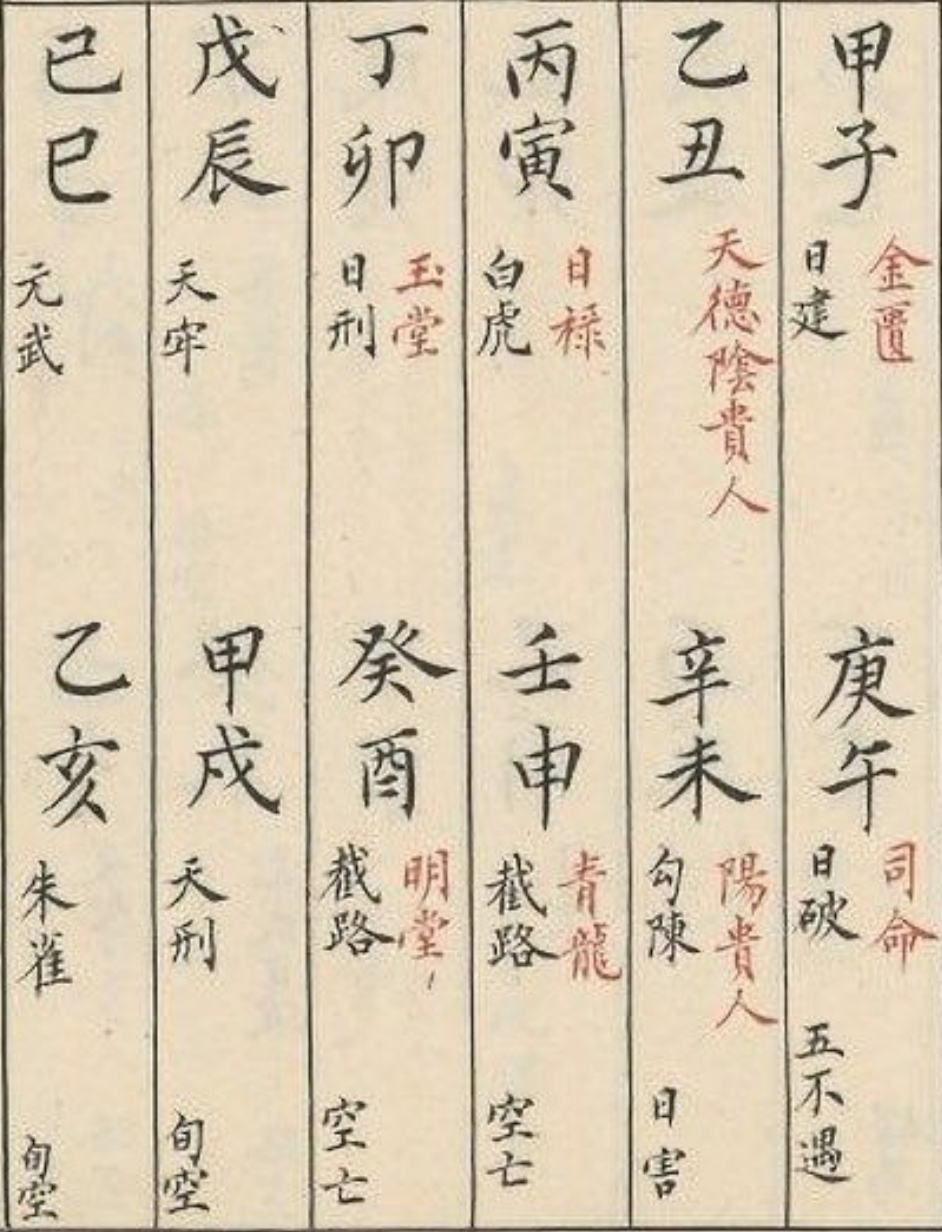 甲子
金匱
日建
庚午
司命
日破
五不遇
乙丑
天德陰貴人
辛未
陽貴人
勾陳
日害
丙寅
日禄
白虎
壬申
青龍
截路
空亡
丁卯
玉堂
日刑
癸酉
明堂
截路
空亡
戊辰
天牢
甲戌
天刑
旬空
己巳
元武
乙亥
朱雀
旬空